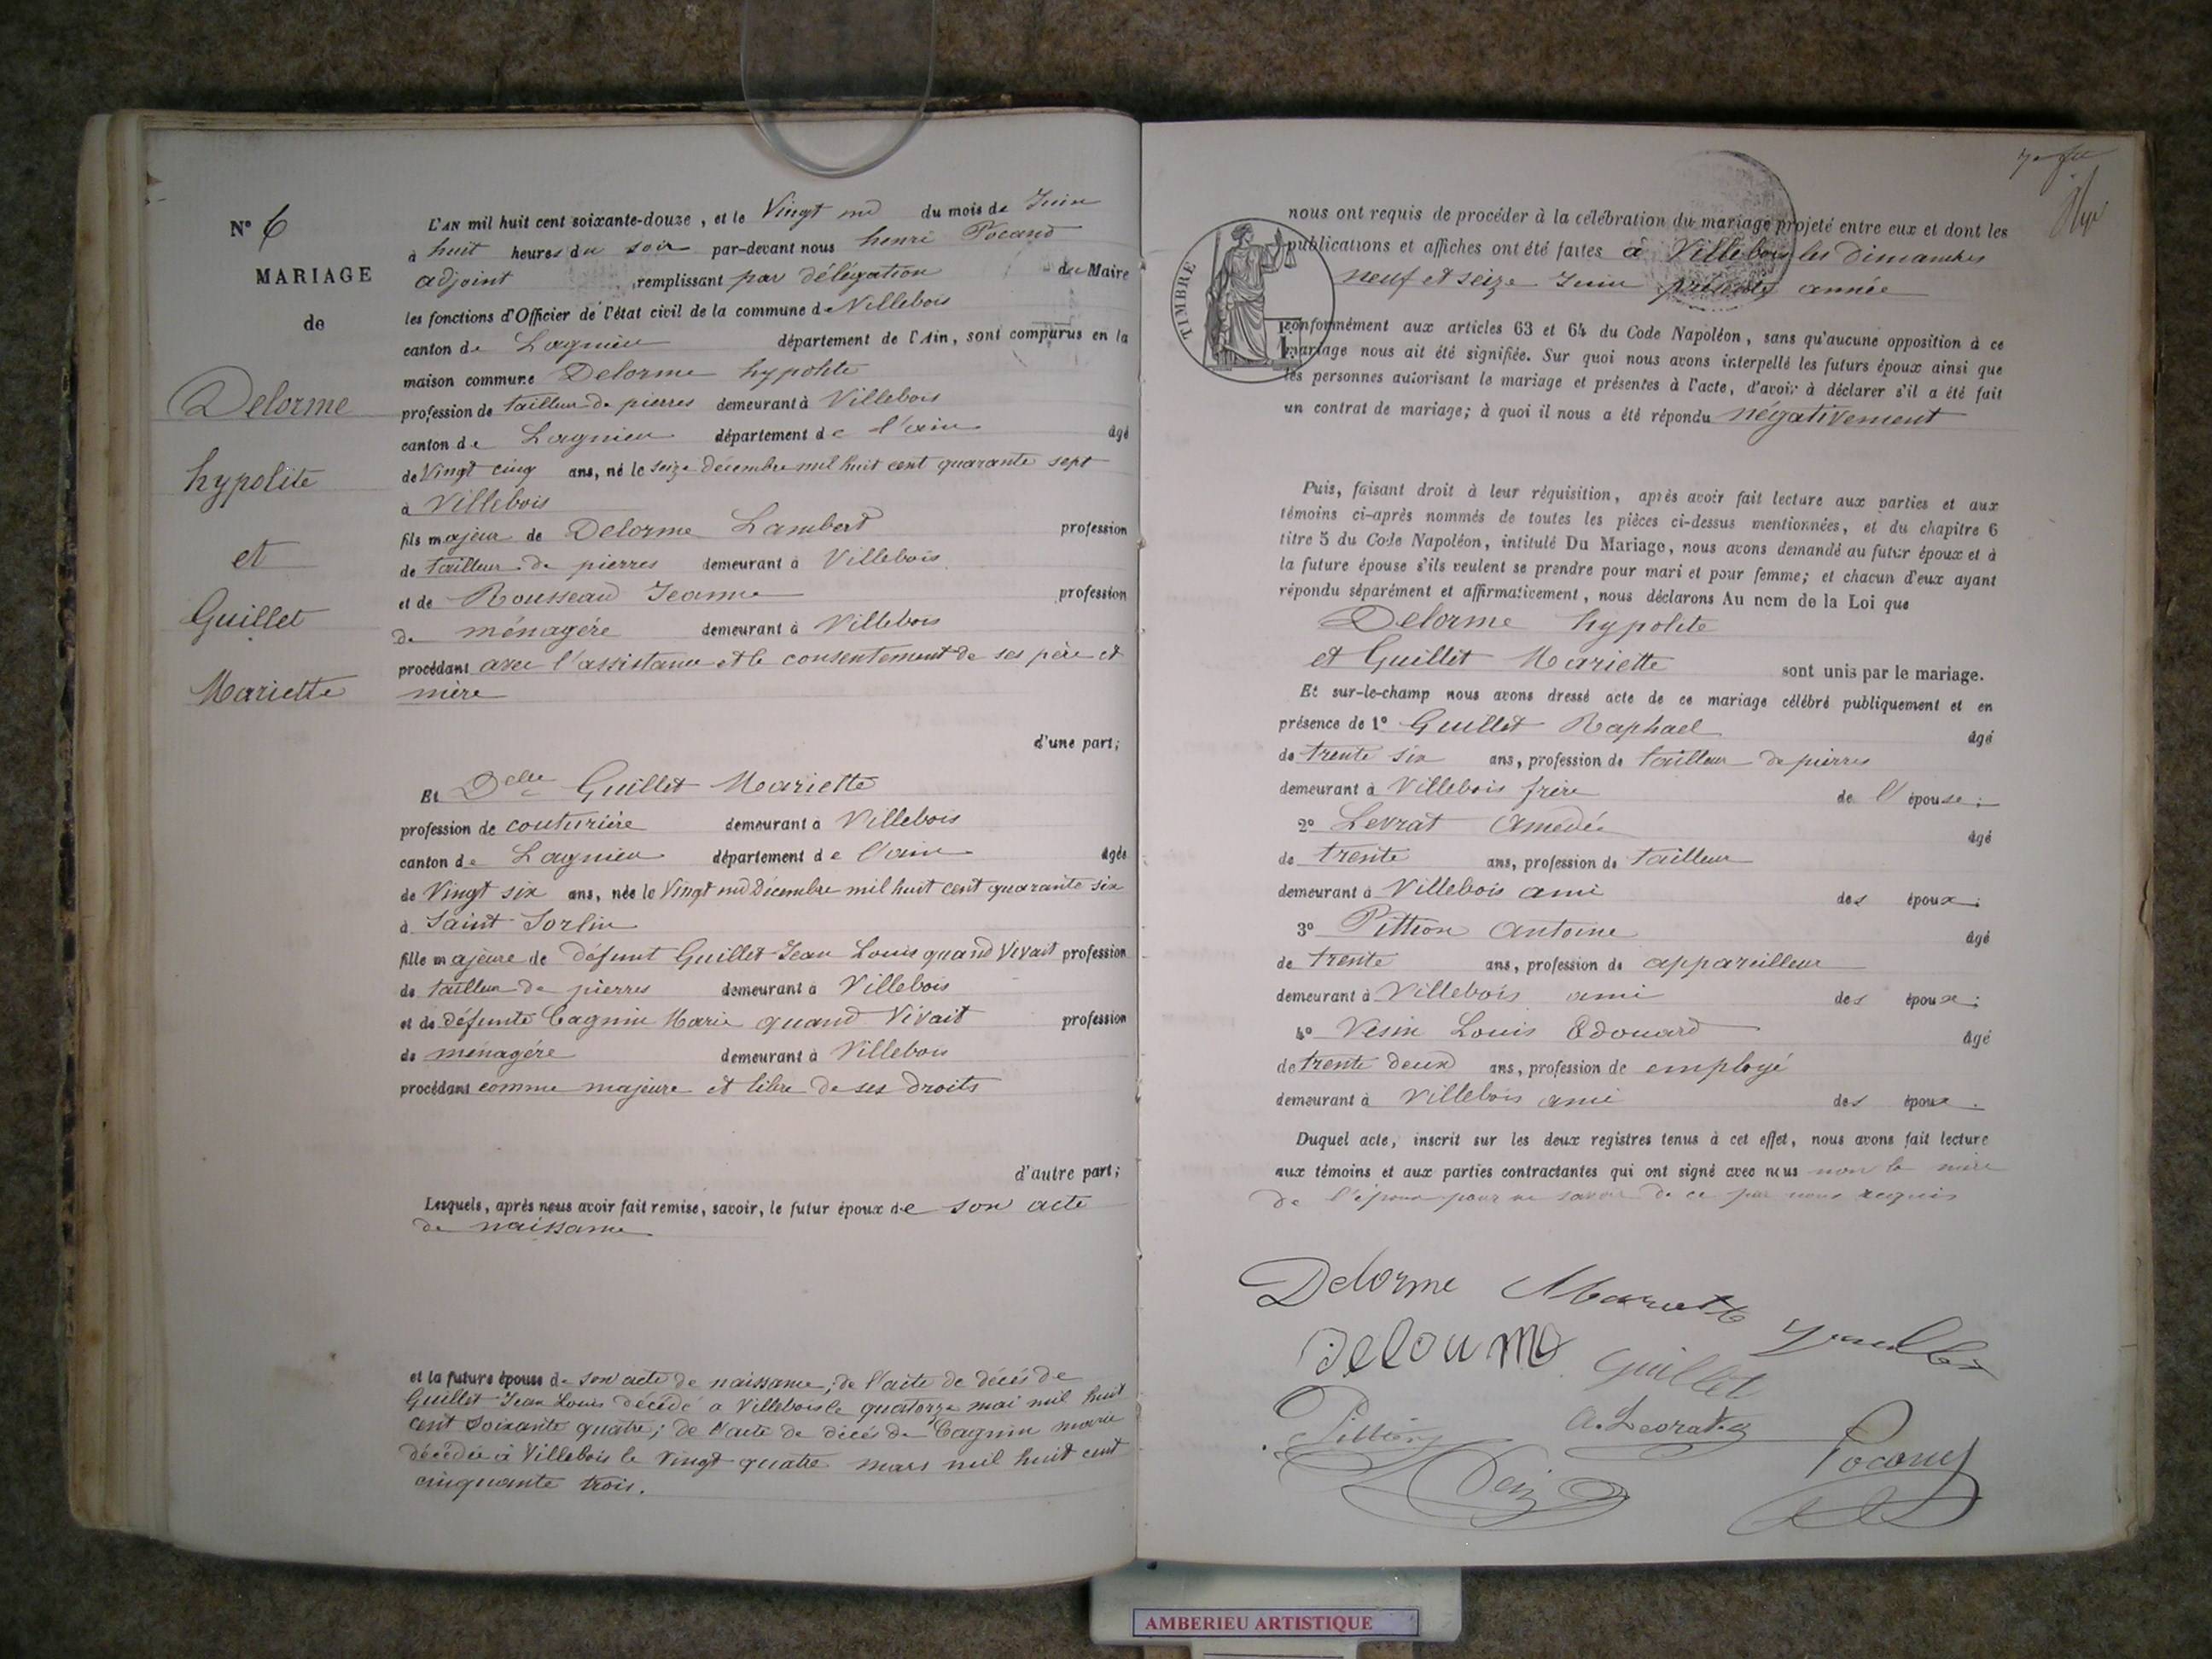 N° 6
MARIAGE
de
Delorme
hypolite
et
Guillet
Mariette
L'AN mil huit cent soixante-douze, et le Vingt neuf du mois de Juin
à huit heures du soir par-devant nous henri Pocand
adjoint remplissant par délégation du Maire
les fonctions d'Officier de l'état civil de la commune de Villebois
canton de Lagnieu département de l'Ain, sont comparus en la
maison commune Delorme hypolite
profession de tailleur de pierres demeurant à Villebois
canton de Lagnieu département de l'ain âgé
de Vingt cinq ans, né le seize décembre mil huit cent quarante sept
à Villebois
fils majeur de Delorme Lambert profession
de tailleur de pierres demeurant à Villebois
et de Rousseau Jeanne profession
de ménagére demeurant à Villebois
procédant avec l'assistance et le consentement de ses père et
mère
d'une part;
Et Delle Guillet Mariette
profession de couturière demeurant à Villebois
canton de Lagnieu département de l'ain âgée
de Vingt six ans, née le Vingt neuf Décembre mil huit cent quarante six
à Saint Sorlin
fille majeure de défunt Guillet Jean Louis quand Vivait profession
de tailleur de pierres demeurant à Villebois
et de défunte Cagnin Marie quand Vivait profession
de ménagére demeurant à Villebois
procédant comme majeure et libre de ses droits
d'autre part;
Lesquels, après nous avoir fait remise, savoir, le futur époux de son acte
de naissance
et la future épouse de son acte de naissance; de l'acte de décés de
Guillet Jean Louis décédé à Villebois le quatorze mai mil huit
cent soixante quatre; de l'acte de décés de Cagnin marie
décédée à Villebois le Vingt quatre mars mil huit cent
cinquante trois.
nous ont requis de procéder à la célébration du mariage projeté entre eux et dont les
publications et affiches ont été faites à Villebois les Dimanches
neuf et seize Juin présente année
TIMBRE
conformément aux articles 63 et 64 du Code Napoléon, sans qu'aucune opposition à ce
mariage nous ait été signifiée. Sur quoi nous avons interpellé les futurs époux ainsi que
les personnes autorisant le mariage et présentes à l'acte, d'avoir à déclarer s'il a été fait
un contrat de mariage; à quoi il nous a été répondu négativement
Puis, faisant droit à leur réquisition, après avoir fait lecture aux parties et aux
témoins ci-après nommés de toutes les pièces ci-dessus mentionnées, et du chapitre 6
titre 5 du Code Napoléon, intitulé Du Mariage, nous avons demandé au futur époux et à
la future épouse s'ils veulent se prendre pour mari et pour femme; et chacun d'eux ayant
répondu séparément et affirmativement, nous déclarons Au nom de la Loi que
Delorme hypolite
et Guillet Mariette sont unis par le mariage.
Et sur-le-champ nous avons dressé acte de ce mariage célébré publiquement et en
présence de 1° Guillet Raphael âgé
de trente six ans, profession de tailleur de pierres
demeurant à Villebois frère de l'épouse;
2° Levrat Amedée âgé
de trente ans, profession de tailleur
demeurant à Villebois ami des époux;
3° Pittion Antoine âgé
de trente ans, profession de appareilleur
demeurant à Villebois ami des époux;
4° Vesin Louis Edouard âgé
de trente deux ans, profession de employé
demeurant à Villebois ami des époux.
Duquel acte, inscrit sur les deux registres tenus à cet effet, nous avons fait lecture
aux témoins et aux parties contractantes qui ont signé avec nous non la mère
de l'époux pour ne savoir de ce par nous requis
Delorme Mariette Guillet
Delorme Guillet
Pittion A. Levrat
Pocand
AMBERIEU ARTISTIQUE